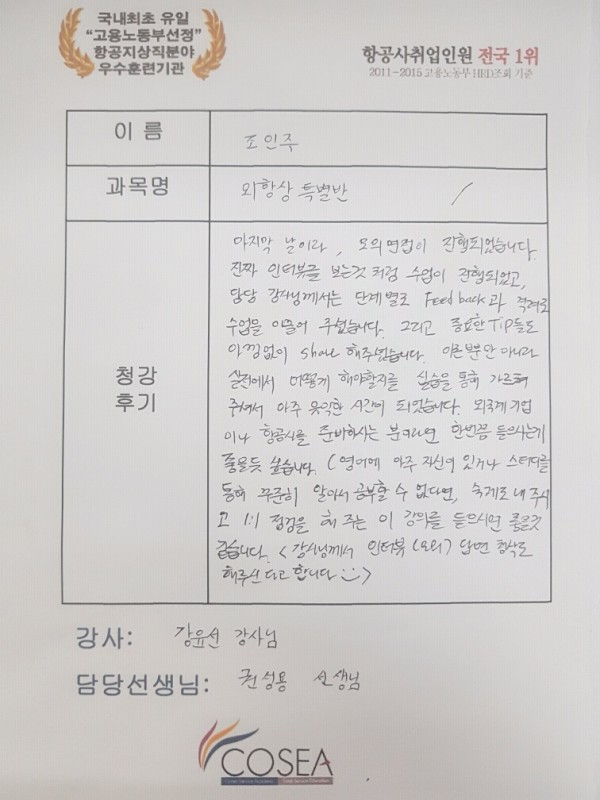 국내최초 유일
"고용노동부선정"
항공지상직분야
우수훈련기관
항공사취업인원 전국 1위
2011-2015 고용노동부 HRD조회 기준
이 름
조인주
과목명
외항상 특별반
청강
후기
마지막 날이라, 모의면접이 진행되었습니다.
진짜 인터뷰를 보는것 처럼 수업이 진행되었고,
담당 강사님께서는 단계별로 Feedback과 격려로
수업을 이끌어 주셨습니다. 그리고 중요한 TIP들도
아낌없이 share 해주셨습니다. 이론뿐만 아니라
실전에서 어떻게 해야할지를 실습을 통해 가르쳐
주셔서 아주 유익한 시간이 되었습니다. 외국계 기업
이나 항공사를 준비하시는 분이라면 한번쯤 들으시는게
좋을듯 싶습니다. (영어에 아주 자신이 있거나 스터디를
통해 꾸준히 알아서 공부할 수 없다면, 숙제도 내 주시
고 1:1 점검을 해 주는 이 강의를 들으시면 좋을것
같습니다. <강사님께서 인터뷰 (모의) 답변 첨삭도
해주신다고 합니다 :)>
강사: 강유선 강사님
담당선생님: 권성용 선생님
COSEA